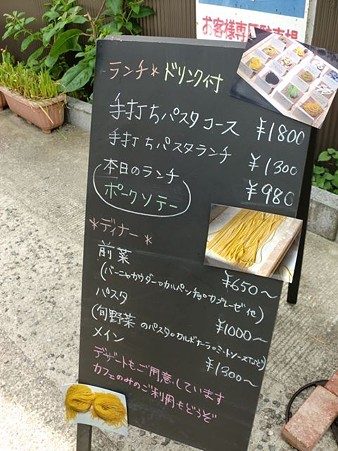 お客様専用駐車場
ランチ*ドリンク付
手打ちパスタコース ¥1800
手打ちパスタランチ ¥1300
本日のランチ ¥980
ポークソテー
*ディナー*
前菜 ¥650〜
(バーニャカウダー。カルパッチョ。カプレーゼ 他)
パスタ ¥1000〜
(旬野菜のパスタ。カルボナーラ。ミートソースなど)
メイン ¥1300〜
デザートもご用意しています
カフェのみのご利用もどうぞ